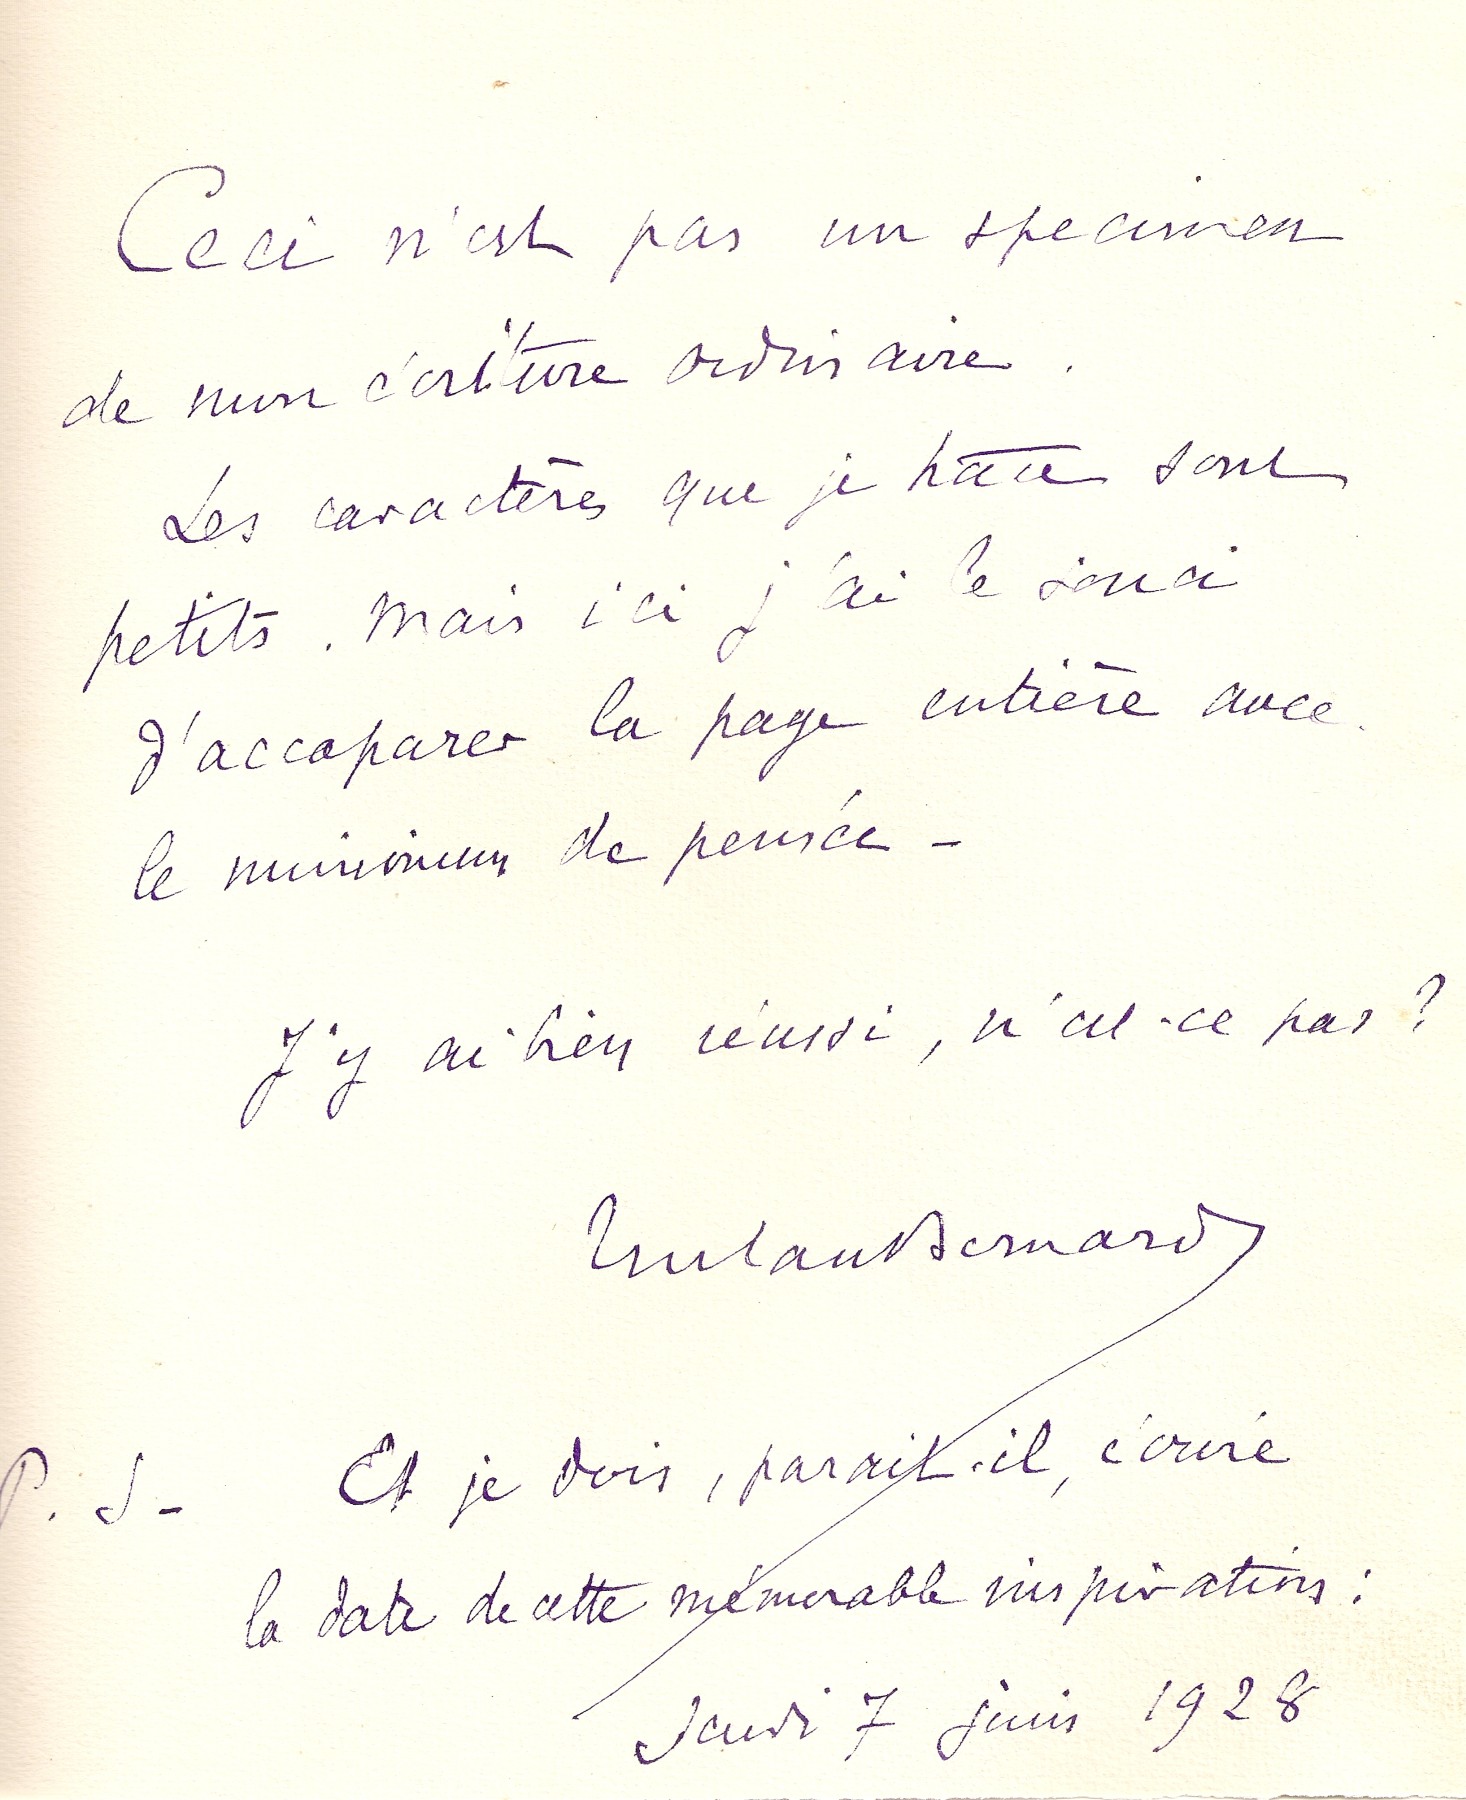 Ceci n'est pas un specimen
de mon écriture ordinaire.
Les caractères que je trace sont
petits. Mais ici j'ai le souci
d'accaparer la page entière avec
le minimum de pensée –
J'y ai bien réussi, n'est-ce pas ?
Tristan Bernard
P. S – Et je dois, parait-il, écrire
la date de cette mémorable inspiration :
Jeudi 7 juin 1928